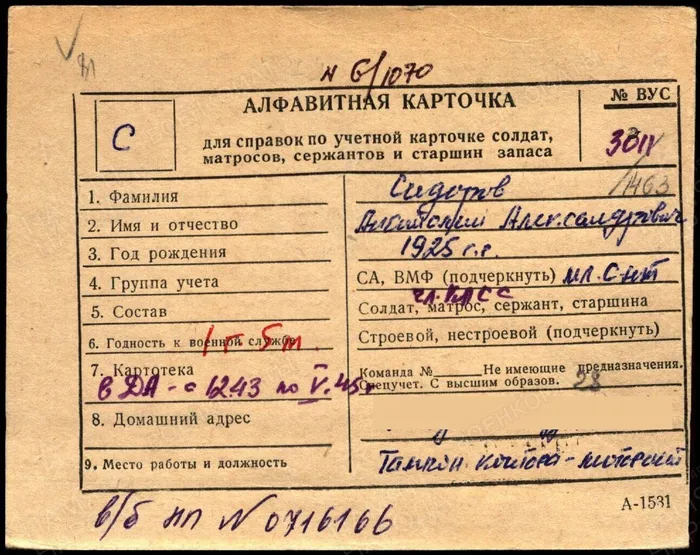 N 6/1070
АЛФАВИТНАЯ КАРТОЧКА
№ ВУС
С
для справок по учетной карточке солдат,
матросов, сержантов и старшин запаса
/463
1. Фамилия
Сидоров
2. Имя и отчество
Анатолий Александрович
3. Год рождения
1925 г.р.
4. Группа учета
СА, ВМФ (подчеркнуть) мл. с-нт
чл. КПСС
5. Состав
Солдат, матрос, сержант, старшина
6. Годность к военной службе
1 г 5 т.
Строевой, нестроевой (подчеркнуть)
7. Картотека
Команда № Не имеющие предназначения.
Спецучет. С высшим образов. 28
в ДА - с 12.43 по V.45 г
8. Домашний адрес
9. Место работы и должность
в/б НП N 0716166
А-1531